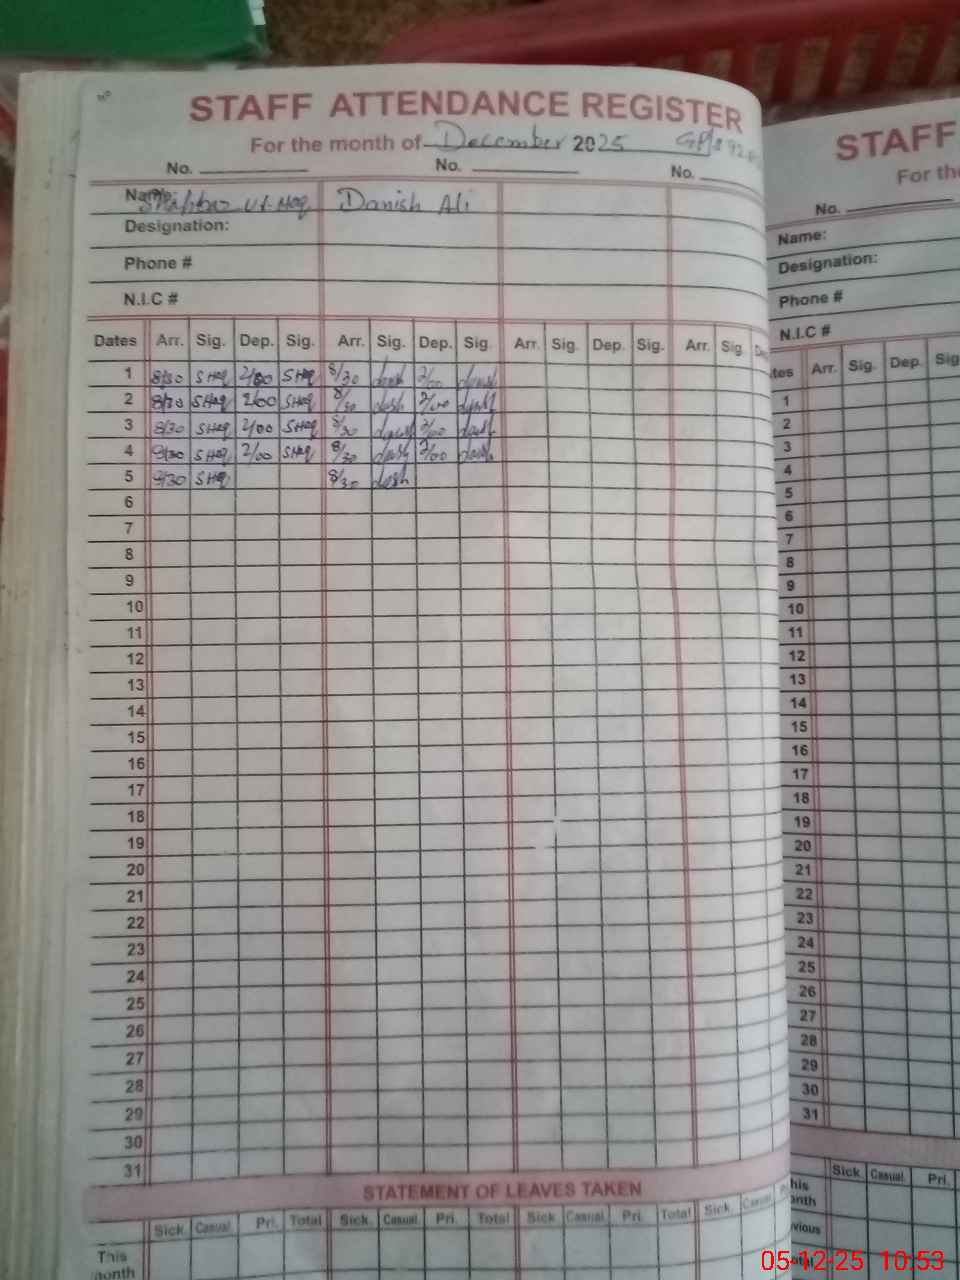 STAFF ATTENDANCE REGISTER
For the month of December 2025
No. No. No.
Name: Ul-Haq Danish Ali
Designation:
Phone #
N.I.C #
Dates Arr. Sig. Dep. Sig. Arr. Sig. Dep. Sig. Arr. Sig. Dep. Sig. Arr. Sig.
1 8/30 SHaq 2/00 SHaq 8/30 2/00
2 8/30 SHaq 2/00 SHaq 8/30 2/00
3 8/30 SHaq 2/00 SHaq 8/30 2/00
4 8/30 SHaq 2/00 SHaq 8/30 2/00
5 8/30 SHaq 8/30
6
7
8
9
10
11
12
13
14
15
16
17
18
19
20
21
22
23
24
25
26
27
28
29
30
31
STATEMENT OF LEAVES TAKEN
Sick. Casual. Pri. Total Sick. Casual. Pri. Total Sick. Casual. Pri. Total Sick. Casual.
This
month
STAFF
For the
No.
Name:
Designation:
Phone #
N.I.C #
Arr. Sig. Dep. Sig
1
2
3
4
5
6
7
8
9
10
11
12
13
14
15
16
17
18
19
20
21
22
23
24
25
26
27
28
29
30
31
Sick. Casual. Pri.
05-12-25 10:53